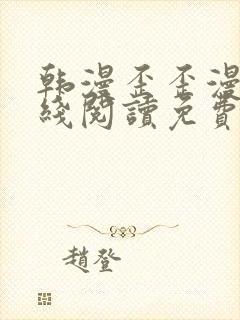 韩漫歪歪漫
綫閱讀免費
趙登